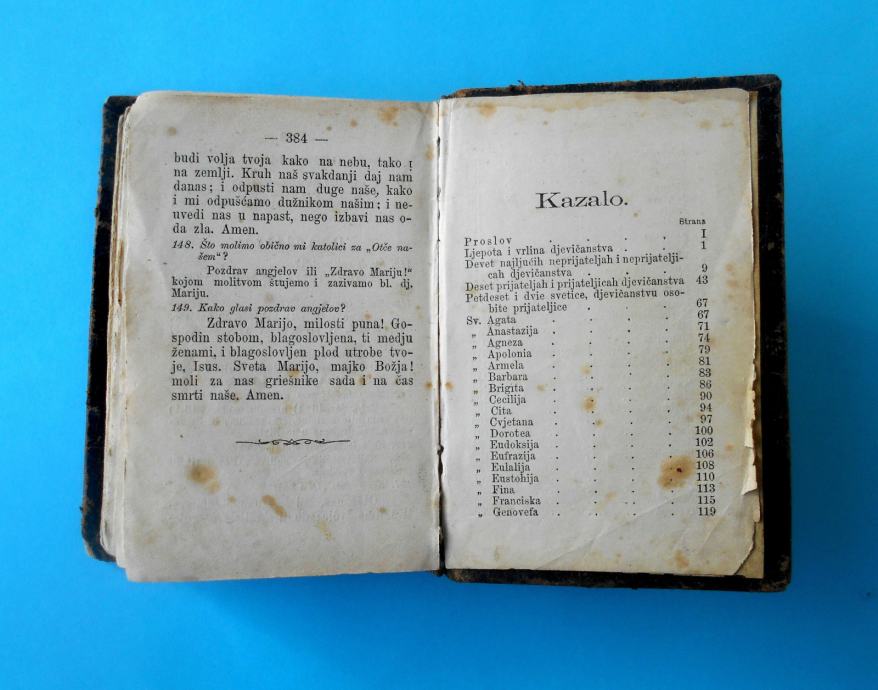 — 384 —
budi volja tvoja kako na nebu, tako i
na zemlji. Kruh naš svakdanji daj nam
danas; i odpusti nam duge naše, kako
i mi odpušćamo dužnikom našim; i ne-
uvedi nas u napast, nego izbavi nas o-
da zla. Amen.
148. Što molimo obično mi katolici za „Otče na-
šem“?
Pozdrav angjelov ili „Zdravo Mariju!“
kojom molitvom štujemo i zazivamo bl. dj.
Mariju.
149. Kako glasi pozdrav angjelov?
Zdravo Marijo, milosti puna! Go-
spodin stobom, blagoslovljena, ti medju
ženami, i blagoslovljen plod utrobe tvo-
je, Isus. Sveta Marijo, majko Božja!
moli za nas griešnike sada i na čas
smrti naše. Amen.
Kazalo.
Strana
Proslov . . . . I
Ljepota i vrlina djevičanstva . . . 1
Devet najljućih neprijateljah i neprijatelji-
cah djevičanstva . . . . 9
Deset prijateljah i prijateljicah djevičanstva 43
Petdeset i dvie svetice, djevičanstvu oso-
bite prijateljice . . . . 67
Sv. Agata . . . . 67
„ Anastazija . . . . 71
„ Agneza . . . . 74
„ Apolonia . . . . 79
„ Armela . . . . 81
„ Barbara . . . . 83
„ Brigita . . . . 86
„ Cecilija . . . . 90
„ Cita . . . . 94
„ Cvjetana . . . . 97
„ Dorotea . . . . 100
„ Eudoksija . . . . 102
„ Eufrazija . . . . 106
„ Eulalija . . . . 108
„ Eustohija . . . . 110
„ Fina . . . . 113
„ Franciska . . . . 115
„ Genovefa . . . . 119